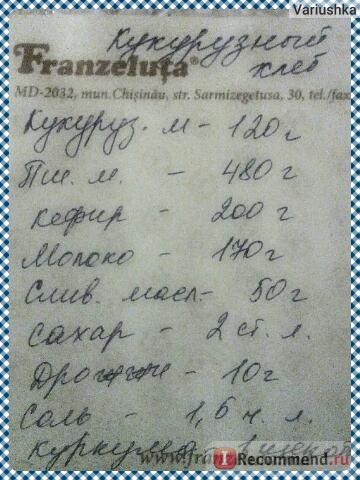 Variushka
Кукурузный
хлеб
Franzeluţa®
MD-2032, mun. Chişinău, str. Sarmizegetusa, 30, tel./fax
Кукуруз. м - 120 г
Пш. м. - 480 г
Кефир - 200 г
Молоко - 170 г
Слив. масл - 50 г
Сахар - 2 ст. л.
Дрожжи - 10 г
Соль - 1,6 ч. л.
Куркума
www.fran
iRecommend.ru